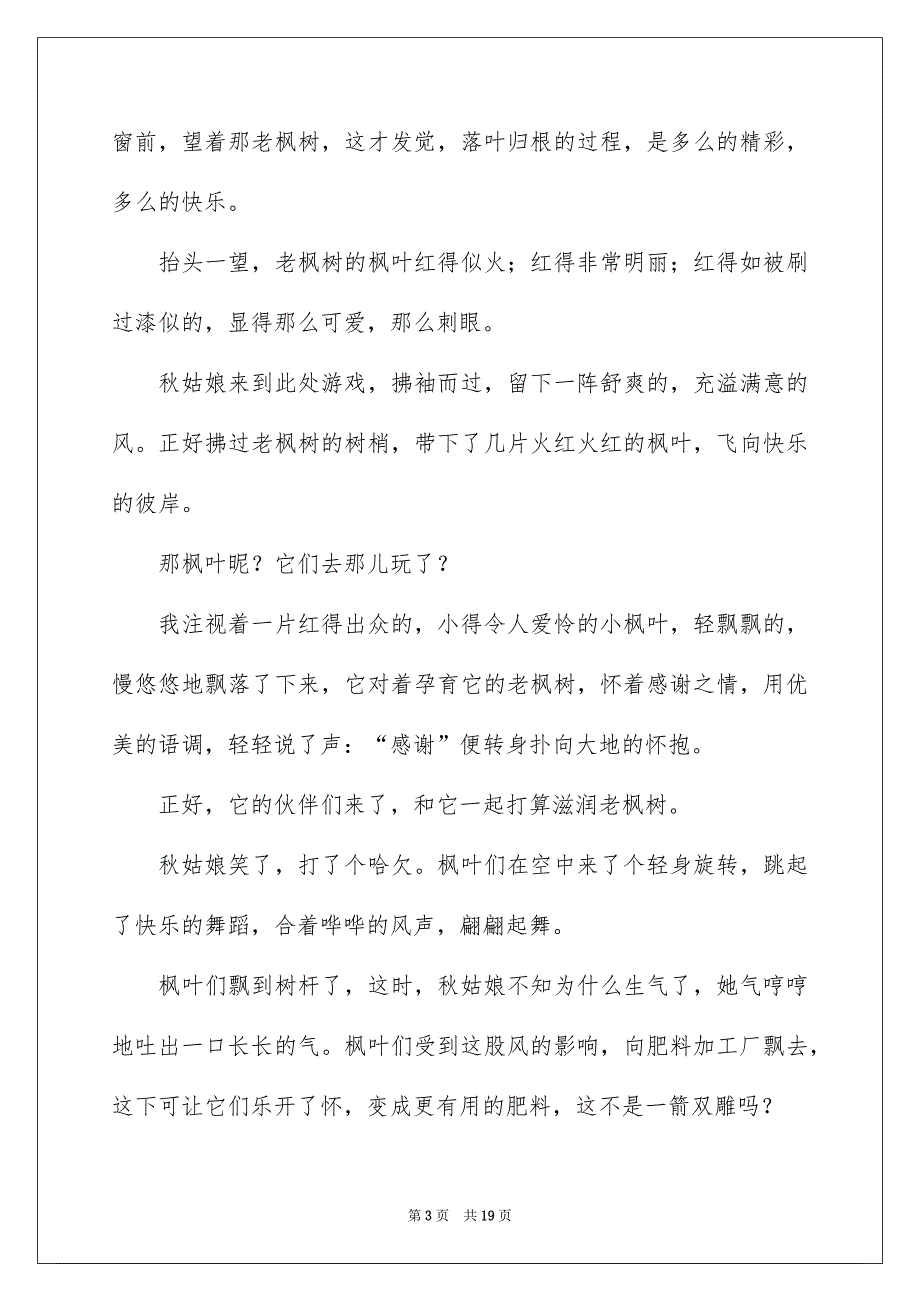 窗前，望着那老枫树，这才发觉，落叶归根的过程，是多么的精彩，
多么的快乐。
抬头一望，老枫树的枫叶红得似火；红得非常明丽；红得如被刷
过漆似的，显得那么可爱，那么刺眼。
秋姑娘来到此处游戏，拂袖而过，留下一阵舒爽的，充溢满意的
风。正好拂过老枫树的树梢，带下了几片火红火红的枫叶，飞向快乐
的彼岸。
那枫叶昵？它们去那儿玩了？
我注视着一片红得出众的，小得令人爱怜的小枫叶，轻飘飘的，
慢悠悠地飘落了下来，它对着孕育它的老枫树，怀着感谢之情，用优
美的语调，轻轻说了声：“感谢”便转身扑向大地的怀抱。
正好，它的伙伴们来了，和它一起打算滋润老枫树。
秋姑娘笑了，打了个哈欠。枫叶们在空中来了个轻身旋转，跳起
了快乐的舞蹈，合着哗哗的风声，翩翩起舞。
枫叶们飘到树杆了，这时，秋姑娘不知为什么生气了，她气哼哼
地吐出一口长长的气。枫叶们受到这股风的影响，向肥料加工厂飘去，
这下可让它们乐开了怀，变成更有用的肥料，这不是一箭双雕吗？
第 3 页 共 19 页